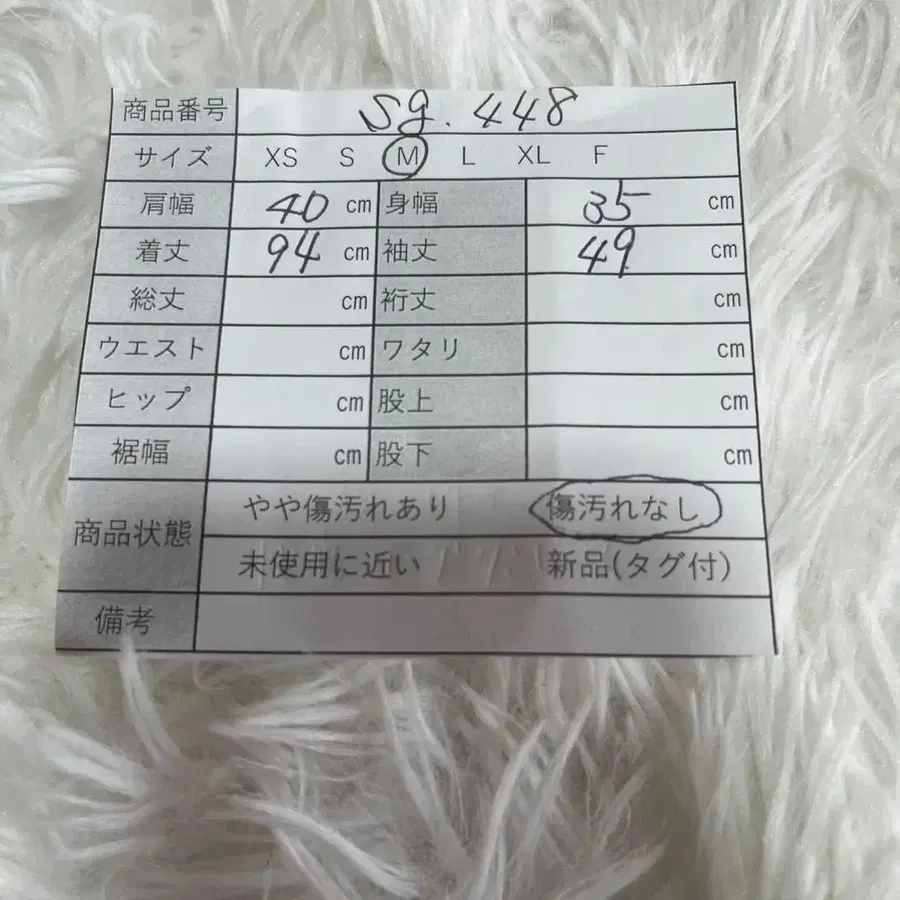 商品番号 sg.448
サイズ XS S M L XL F
肩幅 40 cm 身幅 35 cm
着丈 94 cm 袖丈 49 cm
総丈 cm 裄丈 cm
ウエスト cm ワタリ cm
ヒップ cm 股上 cm
裾幅 cm 股下 cm
商品状態 やや傷汚れあり 傷汚れなし
未使用に近い 新品(タグ付)
備考